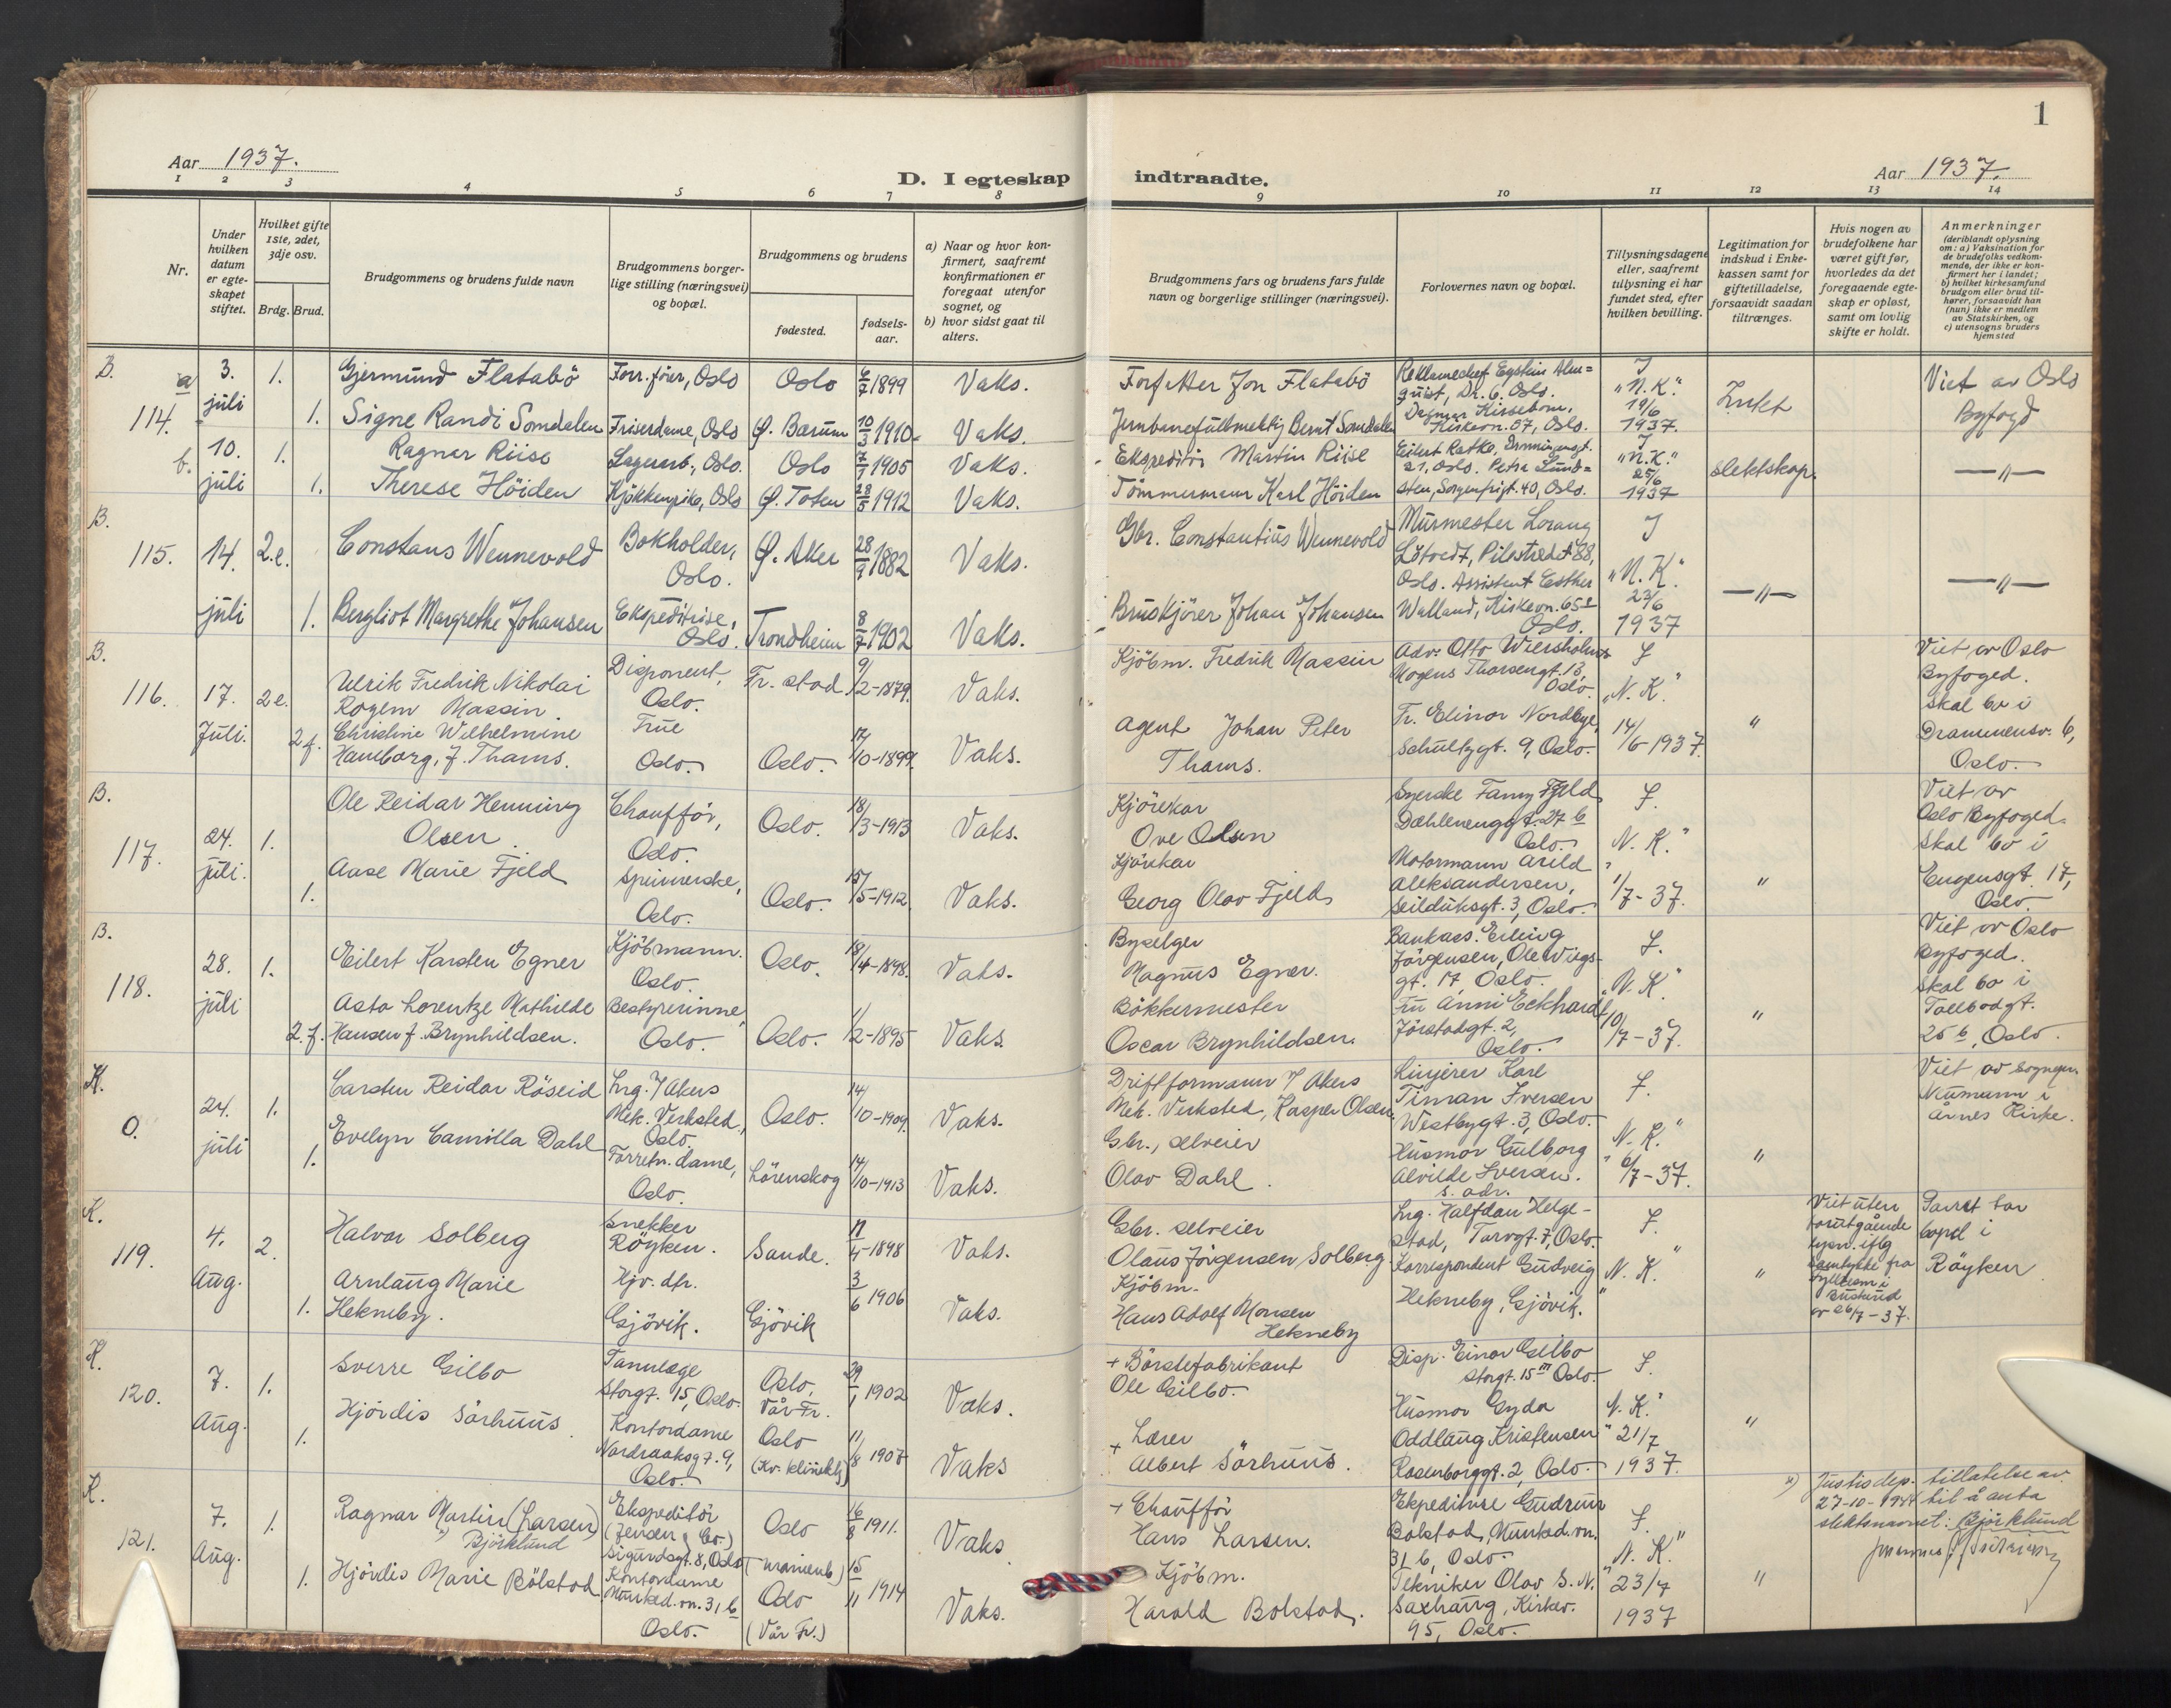 1
Aar 1937.
D. I egteskap indtraadte.
Aar 1937.
1 2 3 4 5 6 7 8 9 10 11 12 13 14
Nr.
Under hvilken datum er egte-skapet stiftet.
Hvilket gifte 1ste, 2det, 3dje osv.
Brdg. Brud.
Brudgommens og brudens fulde navn
Brudgommens borger-lige stilling (næringsvei) og bopæl.
Brudgommens og brudens
fødested.
fødsels-aar.
a) Naar og hvor kon-firmert, saafremt konfirmationen er foregaat utenfor sognet, og
b) hvor sidst gaat til alters.
Brudgommens fars og brudens fars fulde navn og borgerlige stillinger (næringsvei).
Forlovernes navn og bopæl.
Tillysningsdagene eller, saafremt tillysning ei har fundet sted, efter hvilken bevilling.
Legitimation for indskud i Enke-kassen samt for giftetilladelse, forsaavidt saadan tiltrænges.
Hvis nogen av brudefolkene har været gift før, hvorledes da det foregaaende egte-skap er opløst, samt om lovlig skifte er holdt.
Anmerkninger
(deriblandt oplysning om: a) Vaksination for de brudefolks vedkom-mende, der ikke er kon-firmert her i landet; b) hvilket kirkesamfund brudgom eller brud til-hører, forsaavidt han (hun) ikke er medlem av Statskirken, og c) utensogns bruders hjemsted
B. 114. a 3. juli 1. Gjermund Flatabö Forr.förer, Oslo Oslo 6/7 1899 Vaks. Forfatter Jon Flatabö Reklamechef Eystein Alm=quist, Dr. 6. Oslo. "N.K." 19/6 1937. Viet av Oslo Byfogd
1. Signe Randi Somdalen Friserdame, Oslo Ø. Bærum 10/3 1910 Vaks. Jernbanefullmektig Bernt Somdalen Dagmar Kirkevn. 57, Oslo.
b. 10. juli 1. Ragnar Riise Lagerarb., Oslo. Oslo 7/1 1905 Vaks. Ekspeditör Martin Riise Eilert 21, Oslo. Petra Lund= "N.K." 25/6 1937 slektskap. —"—
1. Therese Höiden Kjökkenpike, Oslo Ø. Toten 28/5 1912 Vaks. Tömmermann Karl Höiden sten, Sorgenfrigt. 40, Oslo.
B. 115. 14. juli 2.e. Constans Wennevold Bokholder, Oslo. Ø. Aker 28/9 1882 Vaks. Gbr. Constantius Wennevold Murmester Lorang Lötvedt, Pilestredet 88, Oslo. "N.K." 23/6 1937 —"— —"—
1. Bergliot Margrethe Johansen Ekspeditrise, Oslo. Trondheim 8/7 1902 Vaks. Bruskjörer Johan Johansen Assistent Esther Walland, Kirkevn. 65 Oslo.
B. 116. 17. Juli. 2e. Ulrik Fredrik Nikolai Rogem Massin Disponent, Oslo. Fr. stad 9/2-1879. Vaks. Kjöbm. Fredrik Massin Adv. Otto Wiersholm Mogens Thorsengt. 13, Oslo. "N.K." 14/6-1937. " Viet av Oslo Byfoged. skal bo i Drammensv. 6, Oslo.
2f. Christine Wilhelmine Hamborg, f. Thams. Frue Oslo. Oslo. 17/10-1899. Vaks. Agent Johan Peter Thams. Fr. Elinor Nordbye, Schultzgt. 9, Oslo.
B. 117. 24. juli. 1. Ole Reidar Henning Olsen Chaufför, Oslo. Oslo. 18/3-1913 Vaks. Kjörekar Ove Olsen Syerske Fanny Fjeld Dæhlenenggt. 27 b Oslo. N.K." 1/7-37. " Viet av Oslo Byfoged. Skal bo i Eugensgt. 17, Oslo.
1. Aase Marie Fjeld Spinnerske, Oslo. Oslo. 15/5-1912. Vaks. Kjörekar Georg Olav Fjeld Motormann Arild Aleksandersen, Seilduksgt. 3, Oslo.
B. 118. 28. juli 1. Eilert Karsten Egner Kjöbmann. Oslo. Oslo. 18/4-1898. Vaks. Byselger Magnus Egner. Bankass. Erling Jörgensen, Ole Viigs-gt. 17, Oslo. "N.K." 10/7-37. " Viet av Oslo Byfoged. Skal bo i Tollbodgt. 25 b, Oslo.
2.f. Asta Lorentze Mathilde Hansen f. Brynhildsen. Bestyrerinne, Oslo. Oslo. 1/2-1895 Vaks. Bökkermester Oscar Brynhildsen. Fru Anni Eckhardt, Jörstadgt. 2, Oslo.
K. 0. 24. juli 1. Carsten Reidar Röseid Ing. / Akers Mek. Verksted, Oslo. Oslo. 14/10-1909. Vaks. Driftformann / Akers Mek. Verksted, Kasper Olsen Linjerer Karl Timan Iversen Westbygt. 3, Oslo. N.K." 6/7-37. " Viet av sognepr. Neumann i Årnes Kirke.
1. Evelyn Camilla Dahl Forretn. dame, Oslo. Lörenskog 14/10-1913 Vaks. Gbr., selveier Olav Dahl. Husmor Gulborg Alvilde Iversen. s. adr.
K. 119. 4. Aug. 2. Halvor Solberg Snekker Röyken. Sande. 17/4-1898 Vaks. Gbr. selveier Olaus Jörgensen Solberg Ing. Halfdan Helge-stad, Torvgt. 7, Oslo. N.K." " Viet uten forutgående lysn. iflg samtykke fra fylkesm. i Buskerud av 26/7-37. Parret har bopel i Röyken
1. Arnlaug Marie Hekneby. Hjv. dtr. Gjövik. Gjövik 3/6 1906 Vaks. Kjöbm. Hans Adolf Monsen Hekneby Korrespondent Gudveig Hekneby, Gjövik.
K. 120. 7. Aug. 1. Sverre Gilbo Tannlæge Storgt. 15, Oslo. Oslo, Vår Fr. 29/1 1902 Vaks. + Börstefabrikant Ole Gilbo. Disp. Einar Gilbo Storgt. 15 III Oslo. N.K." 21/7 1937. "
1. Hjördis Sörhuus. Kontordame Nordraaksgt. 9, Oslo. Oslo (Kv. klinikk) 11/8 1907 Vaks + Lærer Albert Sörhuus. Husmor Gyda Oddlaug Kristensen Rosenborggt. 2, Oslo.
K. 121. 7. Aug. 1. Ragnar Martin (Larsen) Björklund Ekspeditör (Jensen & Co.) Sigurdsgt. 8, Oslo Oslo 16/8 1911. Vaks + Chaufför Hans Larsen. Ekspeditrise Gudrun Bolstad, Munked. vn. 31 b, Oslo. "N.K." 23/7 1937 " Justisdep. tillatelse av 27-10-1944 til å anta slektsnavnet: Björklund
1. Hjördis Marie Bolstad Kontordame Munked. vn. 31 b Oslo. Oslo (Vår Fr.) 15/11 1914 Vaks. Kjöbm. Harald Bolstad. Tekniker Olav S. N. Saxhaug, Kirkev. 95, Oslo.